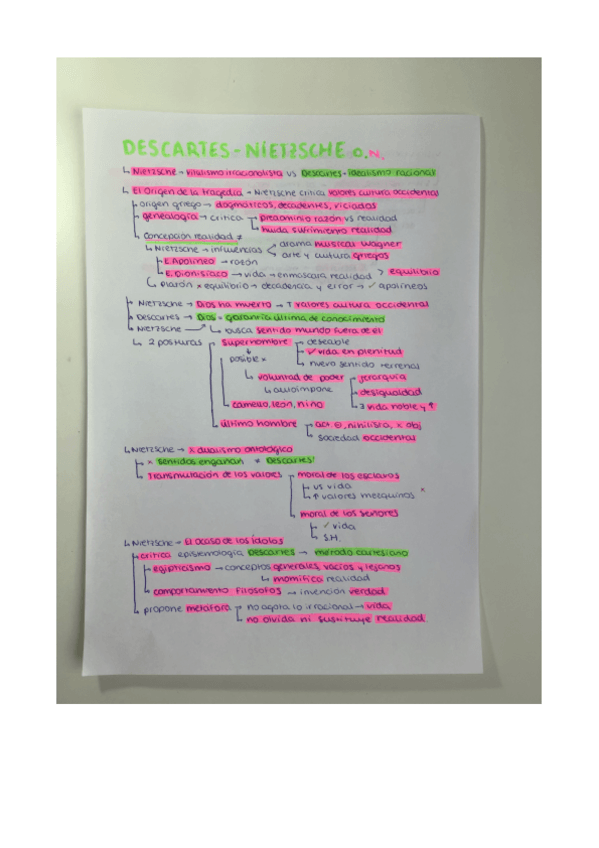 DESCARTES - NIETZSCHE O.N.
↳ Nietzsche → vitalismo irracionalista vs Descartes - idealismo racional
↳ El Origen de la tragedia → Nietzsche critica valores cultura occidental
origen griego → dogmáticos, decadentes, viciados
genealogía → crítica predominio razón vs realidad
huida sufrimiento realidad
concepción realidad ≠
↳ Nietzsche → influencias < drama musical Wagner
arte y cultura griegos
E. Apolíneo → razón
E. Dionisíaco → vida → enmascara realidad > equilibrio
↳ Platón × equilibrio → decadencia y error → ✓ apolíneos
Nietzsche → Dios ha muerto → T valores cultura occidental
Descartes → Dios = garantía última de conocimiento
Nietzsche ↳ busca sentido mundo fuera de él
↳ 2 posturas superhombre deseable
posible × ✓ vida en plenitud
nuevo sentido terrenal
↳ voluntad de poder jerarquía
↳ autoimpone desigualdad
vida noble y ↑
camello, león, niño
último hombre act ⊖, nihilista, × obj
sociedad occidental
↳ Nietzsche → × dualismo ontológico
× sentidos engañan ≠ Descartes!
Transmutación de los valores moral de los esclavos
vs vida
↑ valores mezquinos ×
moral de los señores
✓ vida
S.H.
↳ Nietzsche → El ocaso de los ídolos
crítica epistemología Descartes → método cartesiano
egipticismo → conceptos generales, vacíos y lejanos
↳ momifica realidad
comportamiento filósofos → invención verdad
propone metáfora no agota lo irracional → vida
no olvida ni sustituye realidad